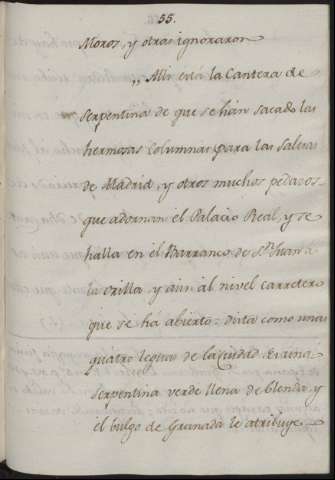 55.
Moros, y otras ignoraron
„ Alli está la Cantera de
Serpentina de que se han sacado las
hermosas columnas para las Salesas
de Madrid, y otros muchos pedazos
que adornan el Palacio Real, y se
halla en el Barranco de Sn. Juan á
la orilla y aun al nivel carretero
que se há abierto: dista como unas
quatro leguas de la Ciudad. Es una
Serpentina verde llena de blenda, y
el bulgo de Granada le atribuye